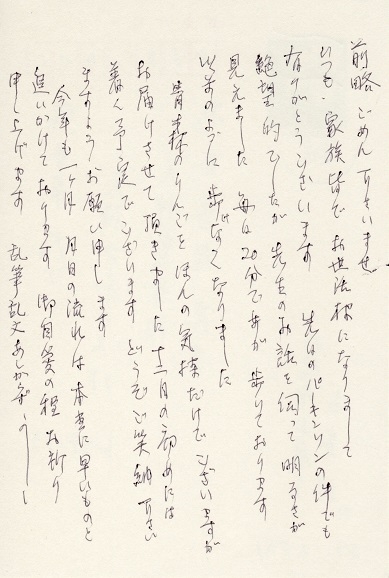 前略ごめん下さいませ
いつも家族皆でお世話様になりまして
有りがとうございます 先日のパーキンソンの件でも
絶望的でしたが先生のお話を伺って明るさが
見えました 毎日20分ですが歩いております
以前のように歩けなくなりました
青森のりんごをほんの気持だけでございますが
お届けさせて頂きました 十二月の初めには
着く予定でございます どうぞご笑納下さい
ますようお願い申します
今年も一ケ月 月日の流れは本当に早いものと
追いかけております 御自愛の程お祈り
申し上げます 乱筆乱文あしからず かしこ